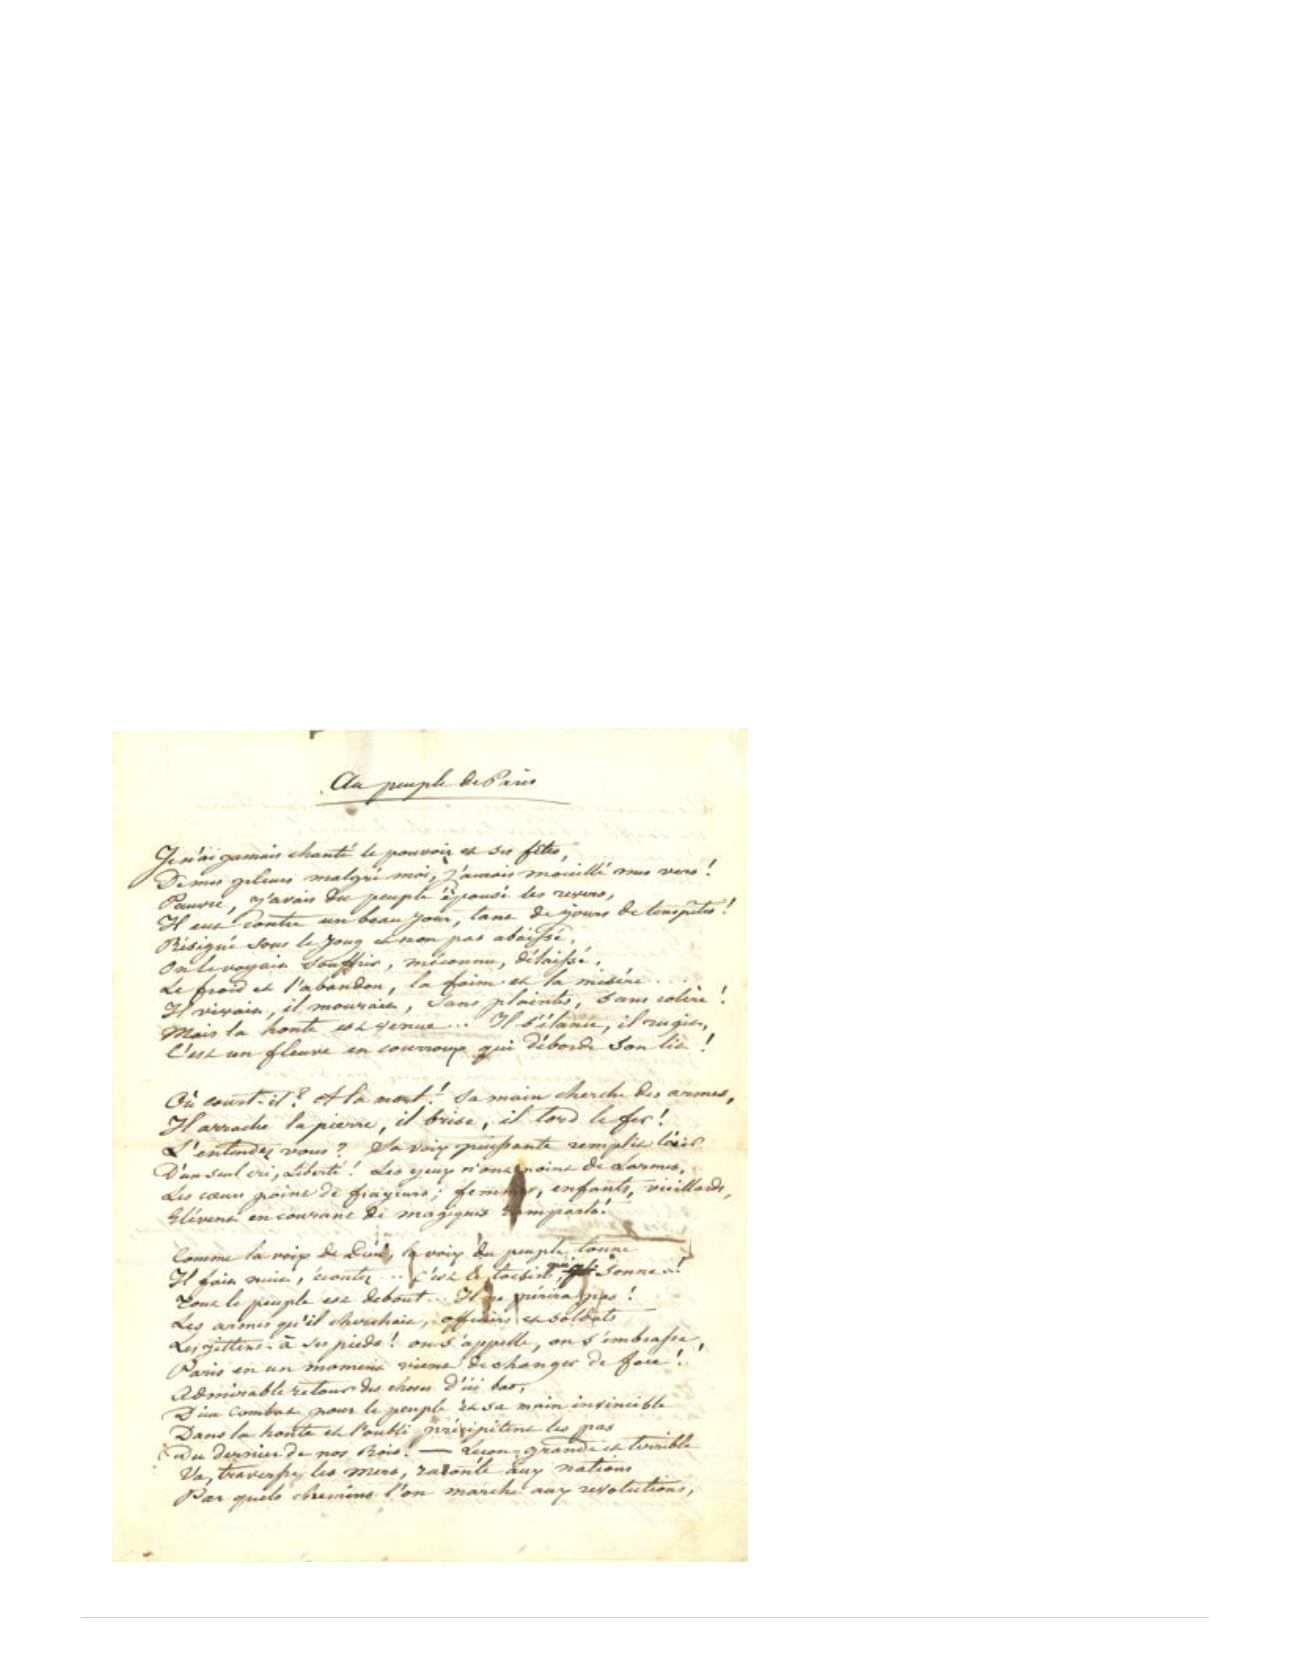 Au peuple de Paris
Je n'ai jamais chanté le pouvoir et ses fêtes,
De mes pleurs malgré moi, j'aurais mouillé mes vers!
Pauvre, j'avais du peuple épousé les revers,
Il eut contre un beau jour, tant de jours de tempêtes!
Résigné sous le joug et non pas abaissé,
On le voyait souffrir, méconnu, délaissé,
Le froid et l'abandon, la faim et la misère....
Il vivait, il mourait, sans plaintes, sans colère!
Mais la honte est venue... Il s'élance, il rugit,
C'est un fleuve en courroux qui déborde son lit!
Où court-il? A la mort! Sa main cherche des armes,
Il arrache la pierre, il brise, il tord le fer!
L'entendez vous? Sa voix puissante remplit l'air
D'un seul cri, Liberté! Les yeux n'ont point de larmes,
Les cœurs point de frayeurs; femmes, enfants, vieillards,
Elèvent en courant de magiques remparts!
Comme la voix de Dieu, la voix du peuple tonne
Il fait nuit, écoutez... C'est le tocsin qui sonne..!
Tout le peuple est debout... Il ne périra pas!
Les armes qu'il cherchait, officiers et soldats
Les jettent à ses pieds! on s'appelle, on s'embrasse,
Paris en un moment vient de changer de face!
Admirable retour des choses d'ici bas,
Dieu combat pour le peuple et sa main invincible
Dans la honte et l'oubli précipitent les pas
Du dernier de nos Rois! — Leçon grande et terrible
Va, traverse les mers, raconte aux nations
Par quels chemins l'on marche aux revolutions,